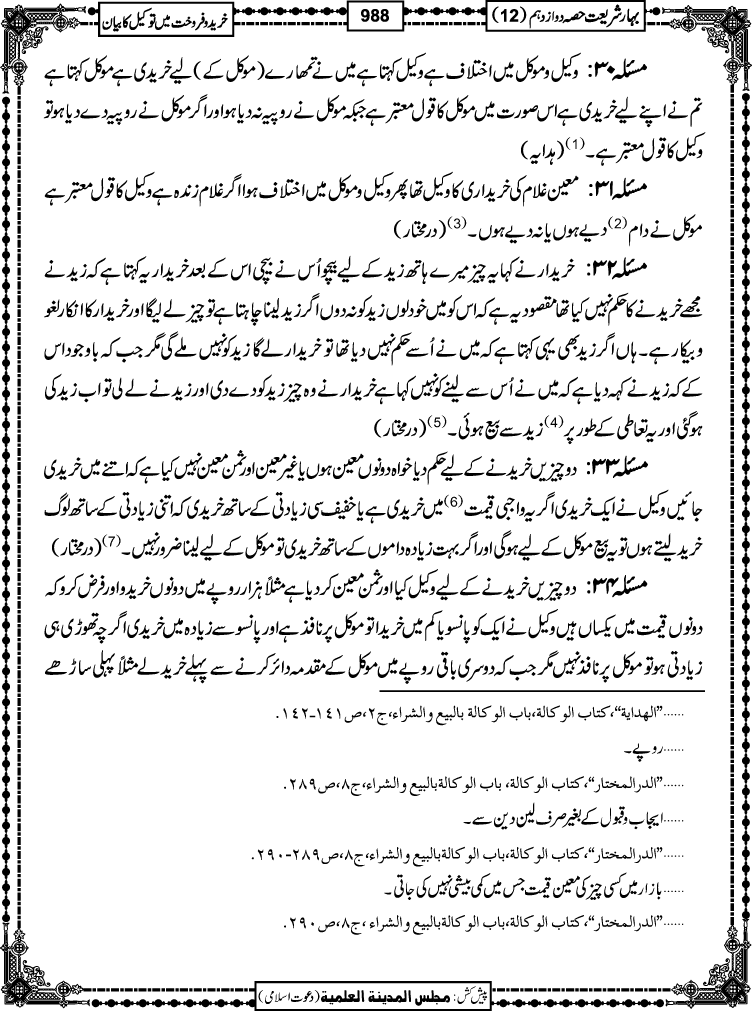 بہارِشریعت حصہ دوازدہم (12)
988
خرید و فروخت میں توکیل کا بیان
مسئلہ ۳۰: وکیل وموکل میں اختلاف ہے وکیل کہتا ہے میں نے تمھارے (موکل کے) لیے خریدی ہے موکل کہتا ہے
تم نے اپنے لیے خریدی ہے اس صورت میں موکل کا قول معتبر ہے جبکہ موکل نے روپیہ نہ دیا ہو اور اگر موکل نے روپیہ دے دیا ہو تو
وکیل کا قول معتبر ہے۔(1) (ہدایہ)
مسئلہ ۳۱: معین غلام کی خریداری کا وکیل تھا پھر وکیل وموکل میں اختلاف ہوا اگر غلام زندہ ہے وکیل کا قول معتبر ہے
موکل نے دام(2) دیے ہوں یا نہ دیے ہوں۔(3) (درمختار)
مسئلہ ۳۲: خریدار نے کہا یہ چیز میرے ہاتھ زید کے لیے بیچو اُس نے بیچی اس کے بعد خریدار یہ کہتا ہے کہ زید نے
مجھے خریدنے کا حکم نہیں کیا تھا مقصود یہ ہے کہ اس کو میں خود لوں زید کو نہ دوں اگر زید لینا چاہتا ہے تو چیز لے لیگا اور خریدار کا انکار لغو
وبیکار ہے۔ ہاں اگر زید بھی یہی کہتا ہے کہ میں نے اُسے حکم نہیں دیا تھا تو خریدار لے گا زید کو نہیں ملے گی مگر جب کہ باوجود اس
کے کہ زید نے کہہ دیا ہے کہ میں نے اُس سے لینے کو نہیں کہا ہے خریدار نے وہ چیز زید کو دے دی اور زید نے لے لی تو اب زید کی
ہوگئی اور یہ تعاطی کے طور پر(4) زید سے بیع ہوئی۔(5) (درمختار)
مسئلہ ۳۳: دو چیزیں خریدنے کے لیے حکم دیا خواہ دونوں معین ہوں یا غیر معین اور ثمن معین نہیں کیا ہے کہ اتنے میں خریدی
جائیں وکیل نے ایک خریدی اگر یہ واجبی قیمت(6) میں خریدی ہے یا خفیف سی زیادتی کے ساتھ خریدی کہ اتنی زیادتی کے ساتھ لوگ
خرید لیتے ہوں تو یہ بیع موکل کے لیے ہوگی اور اگر بہت زیادہ داموں کے ساتھ خریدی تو موکل کے لیے لینا ضرور نہیں۔(7) (درمختار)
مسئلہ ۳۴: دو چیزیں خریدنے کے لیے وکیل کیا اور ثمن معین کردیا ہے مثلاً ہزار روپے میں دونوں خریدو اور فرض کرو کہ
دونوں قیمت میں یکساں ہیں وکیل نے ایک کو پانسو یا کم میں خریدا تو موکل پر نافذ ہے اور پانسو سے زیادہ میں خریدی اگرچہ تھوڑی ہی
زیادتی ہو تو موکل پر نافذ نہیں مگر جب کہ دوسری باقی روپے میں موکل کے مقدمہ دائر کرنے سے پہلے خرید لے مثلاً پہلی ساڑھے
......”الھدایة“،کتاب الوکالة،باب الوکالة بالبیع والشراء،ج۲،ص۱۴۱-۱۴۲.
......روپے۔
......”الدرالمختار“،کتاب الوکالة، باب الوکالةبالبیع والشراء،ج۸،ص۲۸۹.
......ایجاب وقبول کے بغیر صرف لین دین سے۔
......”الدرالمختار“،کتاب الوکالة،باب الوکالةبالبیع والشراء،ج۸،ص۲۸۹-۲۹۰.
......بازار میں کسی چیز کی معین قیمت جس میں کمی بیشی نہیں کی جاتی۔
......”الدرالمختار“،کتاب الوکالة،باب الوکالةبالبیع والشراء ،ج۸،ص۲۹۰.
پیش کش: مجلس المدینة العلمیة (دعوت اسلامی)